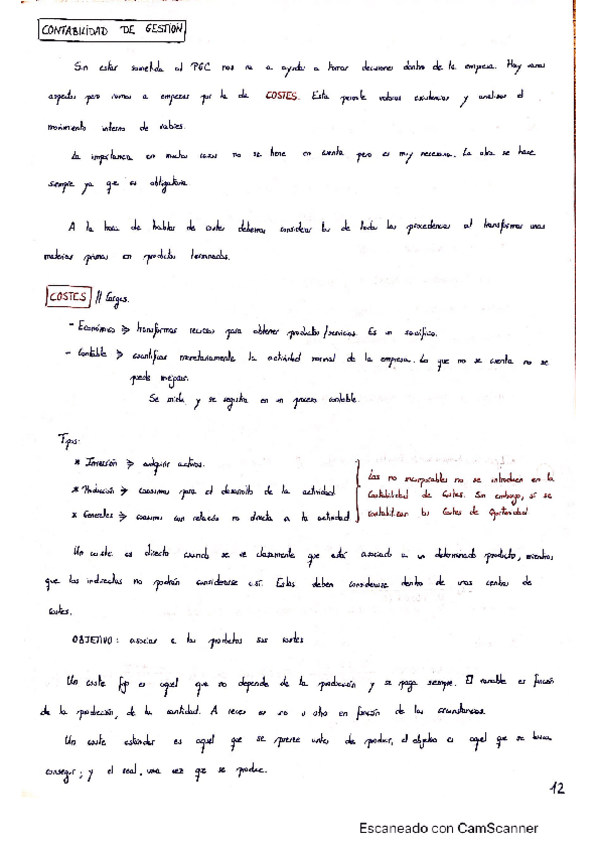 CONTABILIDAD DE GESTIÓN
Sin estar sometida al PGC nos va a ayudar a tomar decisiones dentro de la empresa. Hay varios
aspectos pero vamos a empezar por la de COSTES. Esta permite valorar existencias y analizar el
movimiento interno de valores.
La importancia en muchos casos no se tiene en cuenta pero es muy necesaria. La otra se hace
siempre ya que es obligatoria.
A la hora de hablar de costes debemos considerar los de todos los procedencias al transformar unas
materias primas en productos terminados.
COSTES // Cargas.
- Económico → transformar recursos para obtener productos/servicios. Es un sacrificio.
- Contable → cuantificar monetariamente la actividad normal de la empresa. Lo que no se cuenta no se
puede mejorar.
Se mide y se registra en un proceso contable.
Tipos:
* Inversión → adquirir activos.
* Producción → consumos para el desarrollo de la actividad
* Generales → consumos con relación no directa a la actividad
Los no incorporables no se introducen en la
Contabilidad de Costes. Sin embargo, sí se
contabilizan los Costes de Oportunidad
Un coste es directo cuando se ve claramente que está asociado a un determinado producto, mientras
que los indirectos no podrán considerarse así. Estos deben considerarse dentro de unos centros de
costes.
OBJETIVO: asociar a los productos sus costes
Un coste fijo es aquel que no depende de la producción y se paga siempre. El variable es función
de la producción, de la cantidad. A veces es uno u otro en función de las circunstancias.
Un coste estándar es aquel que se prevee antes de producir, el objetivo es aquel que se busca
conseguir; y el real, una vez que se produce.
12
Escaneado con CamScanner